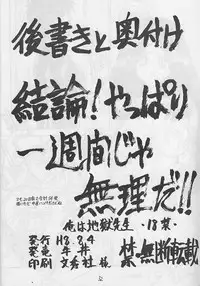 後書きと奥付け
結論!やっぱり
一週間じゃ
無理だ!!
俺は地獄先生・18禁
発行 H8.8.4
発売 牛井
印刷 文秀社 様
禁・無断転載